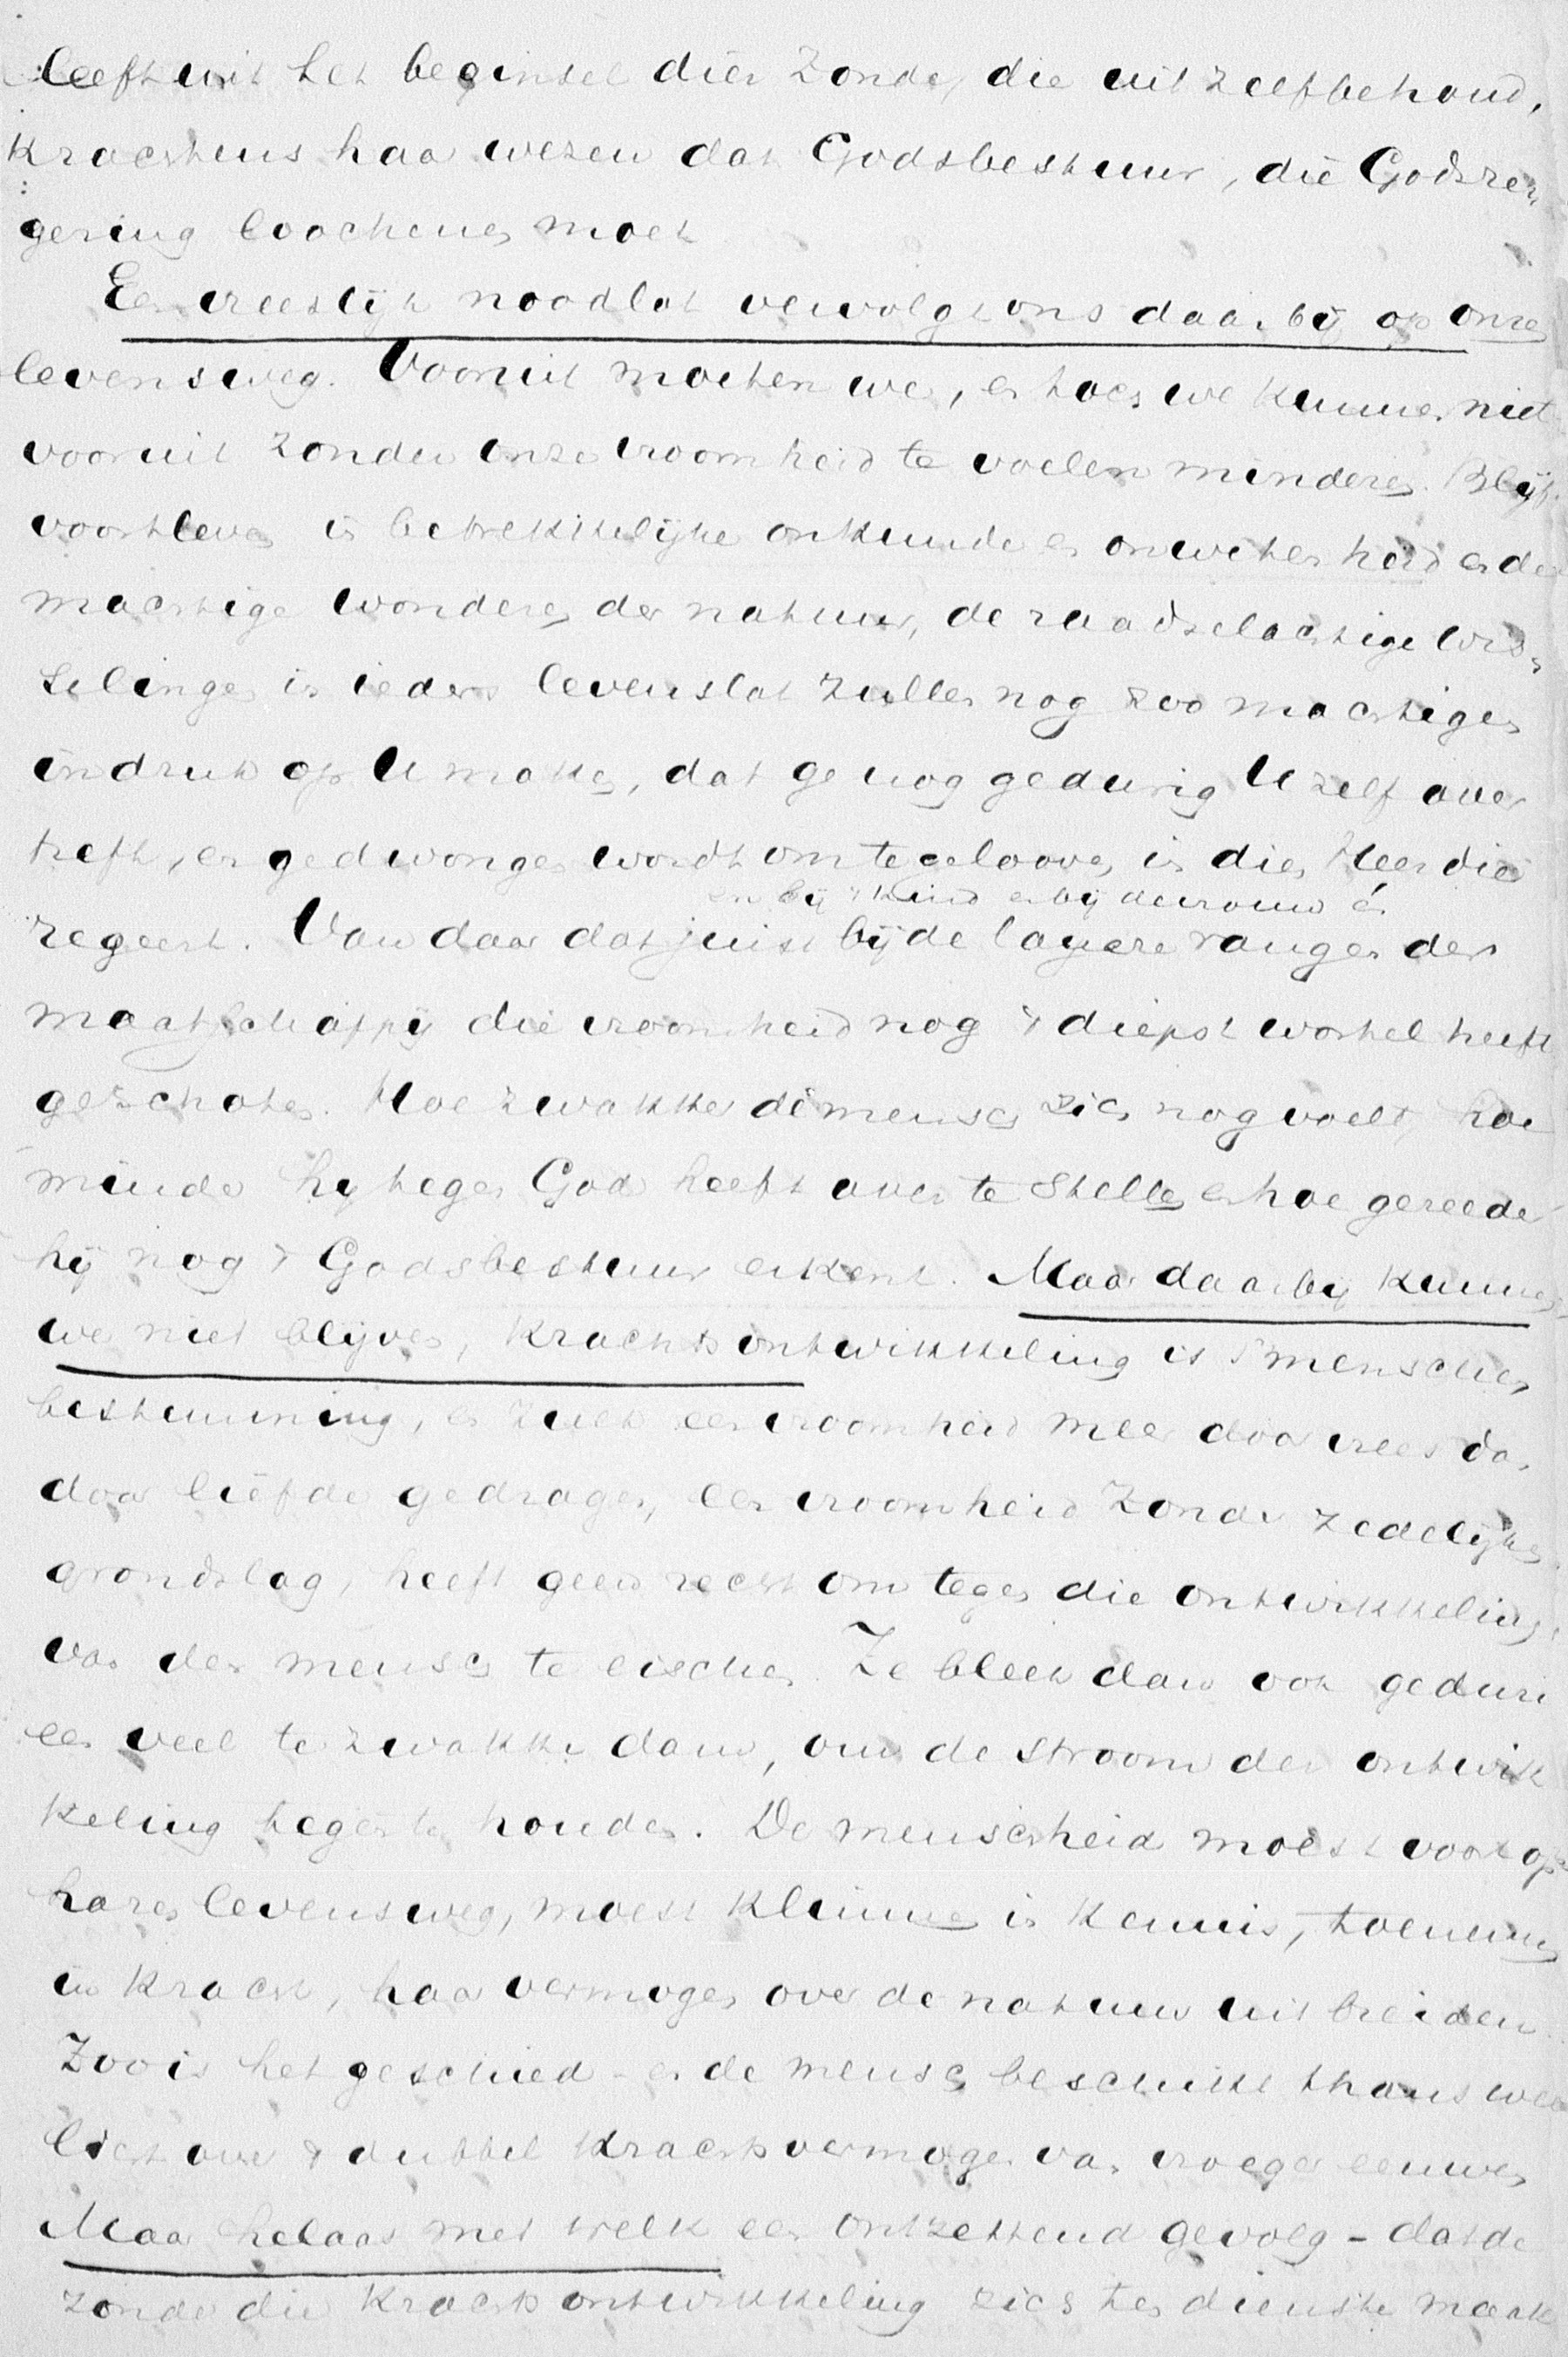 leeft uit het beginsel dier zonde, die uit zelfbehoud,
krachtens haar wezen dat Godsbestuur, die Godsre-
gering loochenen moet
Een vreeslijk noodlot vervolgt ons daarbij op onzen
levensweg. Vooruit moeten we, en toch we kunnen niet
vooruit zonder onze vroomheid te voelen minderen. Blijf
voortleven in betrekkelijke onkunde en onwetenheid en de
machtige wonderen der natuur, de raadselachtige wis-
selingen in ieders levenslot zullen nog zoo machtigen
indruk op U maken, dat ge nog gedurig U zelf over
treft, en gedwongen wordt om te gelooven in dien Heer die
en bij 't kind en bij de vrouw én
regeert. Van daar dat juist bij de lagere rangen der
maatschappij die vroomheid nog 't diepst wortel heeft
geschoten. Hoe zwakker de mensch zich nog voelt, hoe
minder hij tegen God heeft over te stellen en hoe gereeder
hij nog 't Godsbestuur erkent. Maar daarbij kunnen
we niet blijven, krachtsontwikkeling is 's menschen
bestemming, en zulk een vroomheid meer door vrees dan
door liefde gedragen, een vroomheid zonder zedelijken
grondslag, heeft geen recht om tegen die ontwikkeling
van den mensch te eischen. Ze bleek dan ook geduri
een veel te zwakke dam, om de stroom der ontwik
keling tegen te houden. De menschheid moest voort op
haren levensweg, moest klimmen in kennis, toenemen
in kracht, haar vermogen over de natuur uitbreiden.
Zoo is het geschied - en de mensch beschikt thans wel
licht over 't dubbel krachtsvermogen van vroeger eeuwen
Maar helaas met welk een ontzettend gevolg - dat de
zonde die krachtsontwikkeling zich ten dienste maakt